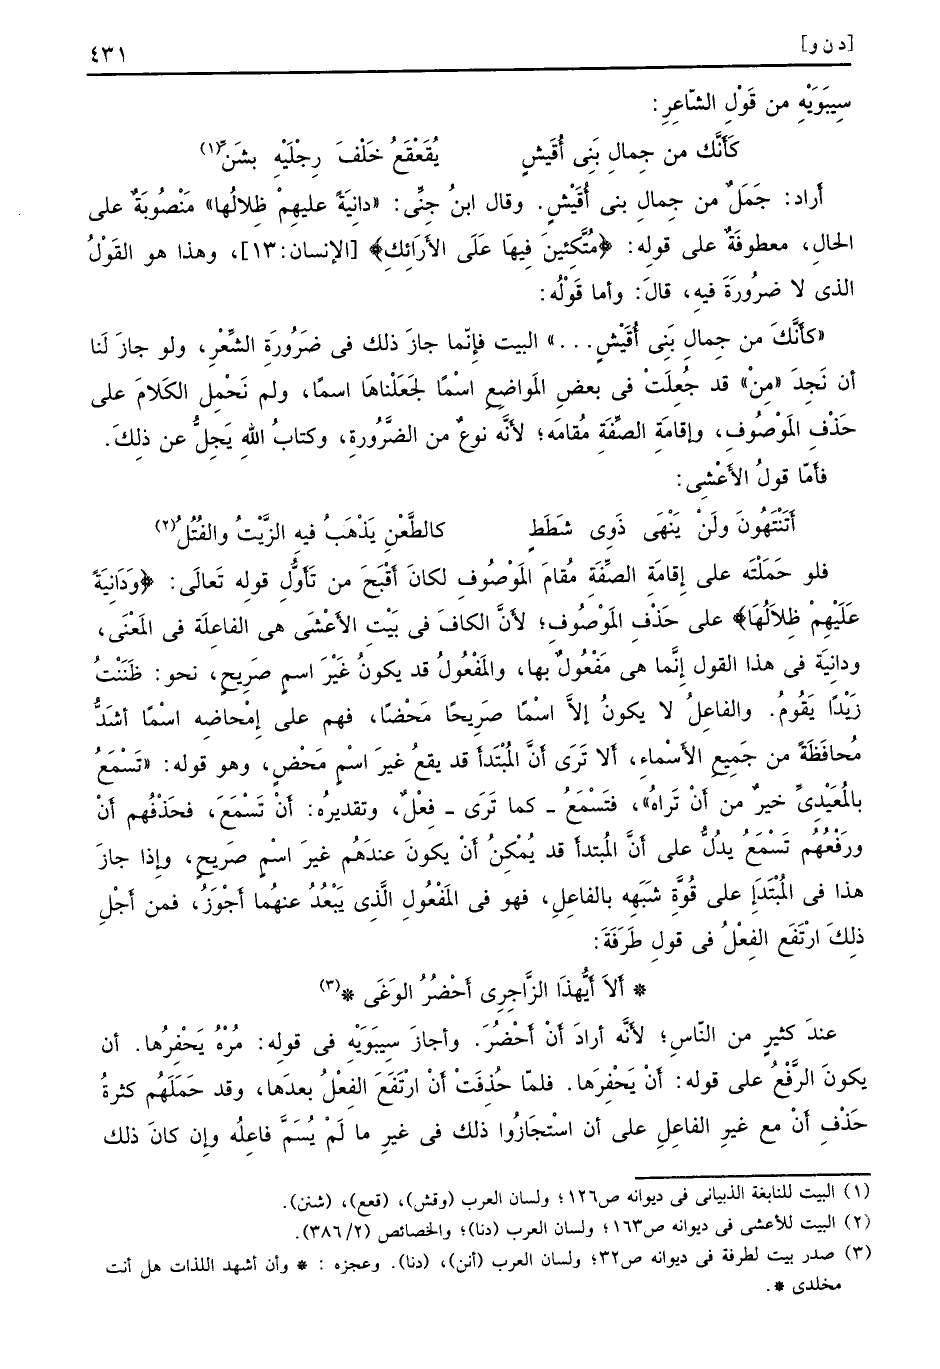 [د ن و] ٤٣١
سِيبَوَيْهِ من قَوْلِ الشّاعِرِ:
كَأَنَّك من جِمالِ بَنِى أُقَيشٍ يُقَعْقَعُ خَلْفَ رِجْلَيْهِ بشَنِّ(١)
أراد: جَمَلٌ من جِمالِ بنى أُقَيْشٍ. وقال ابنُ جِنِّى: «دانيَةً عليهِمْ ظلالُها» مَنْصُوبَةٌ على
الحالِ، معطوفَةٌ على قوله: ﴿مُتَّكئينَ فيهَا عَلَى الأَرَائكِ﴾ [الإنسان:١٣]، وهذا هو القَوْلُ
الذى لا ضرُورَةَ فيه، قالَ: وأما قَوْلُه:
«كأنَّكَ من جِمالِ بَنِى أُقَيْشٍ...» البيت فإنّما جازَ ذلك فى ضَرُورَةِ الشِّعْرِ، ولو جازَ لَنا
أن نَجِدَ «مِنْ» قد جُعِلَتْ فى بعضِ المَواضِعِ اسْمًا لجَعَلْناهَا اسمًا، ولم نَحْمِلِ الكَلامَ على
حَذْفِ المَوْصُوفِ، وإقامَةِ الصِّفَةِ مُقامَه؛ لأنَّه نوعٌ من الضَّرُورة، وكتابُ اللهِ يَجِلُّ عن ذلِكَ.
فأمّا قولُ الأَعْشى:
أَتَنْتَهُونَ ولَنْ يَنْهَى ذَوِى شَطَطٍ كالطَّعْنِ يَذْهَبُ فيهِ الزَّيْتُ والفُتُلُ(٢)
فلو حَمَلْتَه على إقامَةِ الصِّفَةِ مُقامَ المَوْصُوفِ لكانَ أقْبَحَ من تَأَوُّلِ قوله تَعالَى: ﴿وَدَانِيَةً
عَلَيْهِمْ ظِلاَلُهَا﴾ على حَذْفِ المَوْصُوفِ؛ لأنَّ الكافَ فى بَيْتِ الأعْشَى هى الفاعلَة فى المَعْنَى،
ودانِيَة فى هذا القول إنَّما هى مَفْعُولٌ بها، والمَفْعُولُ قد يكونُ غَيْرَ اسمٍ صَرِيحٍ، نحو: ظَنَنْتُ
زَيْدًا يَقُومُ. والفاعِلُ لا يكونُ إلاَّ اسْمًا صَرِيحًا مَحْضًا، فهم على إمْحاضِه اسْمًا أشَدُّ
مُحافَظَةً من جَمِيعِ الأَسْماءِ، ألا تَرَى أنَّ المُبْتَدَأ قد يقعُ غيرَ اسْمٍ مَحْضٍ، وهو قوله: «تَسْمَعُ
بالمُعَيْدِىِّ خيرٌ من أنْ تَراهُ»، فتَسْمَعُ - كما تَرَى - فِعْلٌ، وتقديرُه: أنْ تَسْمَعَ، فحَذْفُهم أنْ
ورَفْعُهُم تَسْمَعُ يدُلُّ على أنَّ المُبتدأ قد يُمْكِنُ أنْ يكونَ عندَهُم غيرَ اسْمٍ صَرِيحٍ، وإذا جازَ
هذا فى المُبْتَدَإ على قُوَّةِ شَبَهِه بالفاعِلِ، فهو فى المَفْعُول الَّذى يَبْعُدُ عنهُما أجْوَزُ، فمن أجْلِ
ذلِكَ ارْتَفَع الفِعْلُ فى قولِ طَرَفَةَ:
* أَلاَ أَيُّهذَا الزَّاجِرِى أَحْضُرُ الوَغَى *(٣)
عندَ كثيرٍ من النّاسِ؛ لأنَّه أرادَ أنْ أحْضُرَ. وأجازَ سِيبَوَيْهِ فى قوله: مُرْهُ يَحْفِرُها. أن
يكونَ الرَّفْعُ على قوله: أنْ يَحْفِرَها. فلمّا حُذفَتْ أنْ ارْتَفَعَ الفِعْلُ بعدَها، وقد حَمَلَهُم كثرةُ
حَذْفِ أنْ مع غيرِ الفاعلِ على أن اسْتجازُوا ذلك فى غيرِ ما لَمْ يُسَمَّ فاعلُه وإن كانَ ذلك
(١) البيت للنابغة الذبيانى فى ديوانه ص١٢٦؛ ولسان العرب (وقش)، (قعع)، (شنن).
(٢) البيت للأعشى فى ديوانه ص١٦٣؛ ولسان العرب (دنا)؛ والخصائص (٣٨٦/٢).
(٣) صدر بيت لطرفة فى ديوانه ص٣٢؛ ولسان العرب (أنن)، (دنا). وعجزه : * وأن أشهد اللذات هل أنت
مخلدى *.